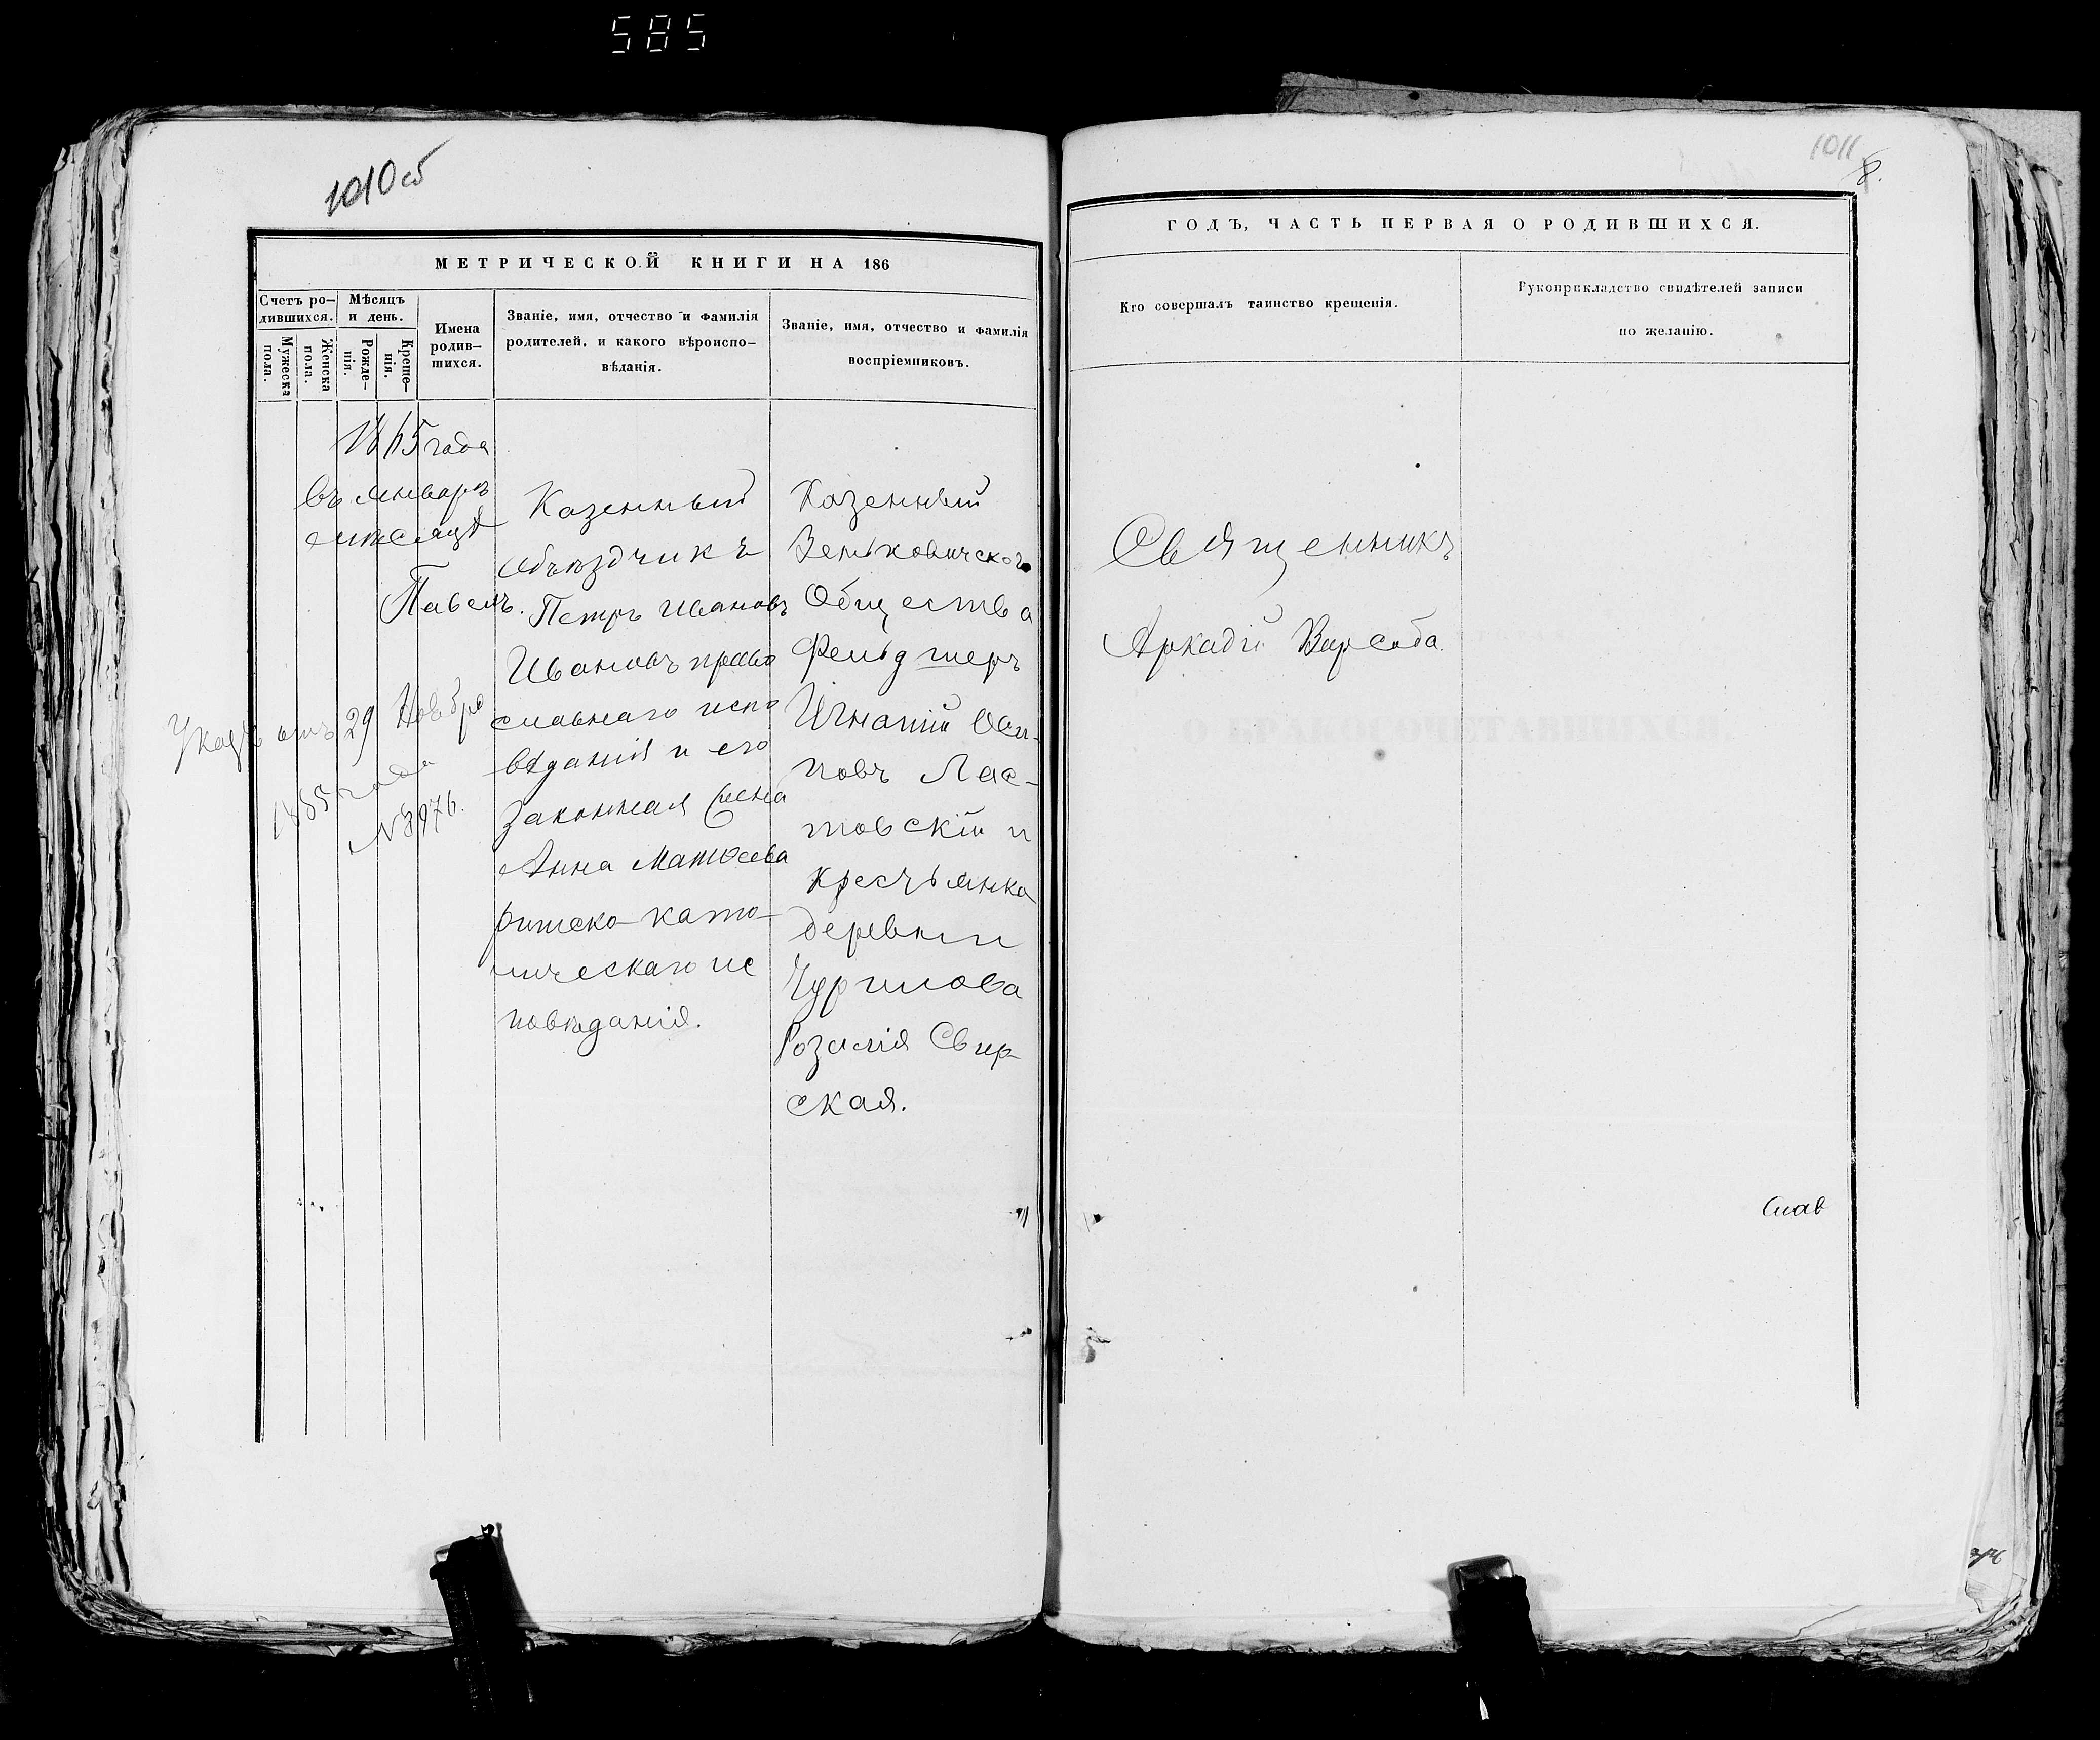 585
1010 об
МЕТРИЧЕСКОЙ КНИГИ НА 186
Счетъ ро-
дившихся.
Мужеска
пола.
Женска
пола.
Мѣсяцъ
и день.
Рожде-
нія.
Креще-
нія.
Имена
родив-
шихся.
Званіе, имя, отчество и фамилія
родителей, и какого вѣроиспо-
вѣданія.
Званіе, имя, отчество и фамилія
воспріемниковъ.
1865 года
въ январѣ
мѣсяцѣ
Павелъ.
Указъ отъ 29 Ноября
1885 года
№ 8976.
Казенный
объѣздчикъ
Петръ Ивановъ
Ивановъ право
славнаго испо
вѣданія и его
законная жена
Анна Матѳеева
римско-като-
лическаго ис
повѣданія.
Казенный
Зеньковичскаго
Общества
Фельдшеръ
Игнатій Оси-
повъ Лас-
товскій и
крестьянка
деревни
Чурилова
Розалія Свир-
ская.
1011
8.
ГОДЪ, ЧАСТЬ ПЕРВАЯ О РОДИВШИХСЯ.
Кто совершалъ таинство крещенія.
Рукоприкладство свидѣтелей записи
по желанію.
Священникъ
Аркадій Варсоба.
Слав